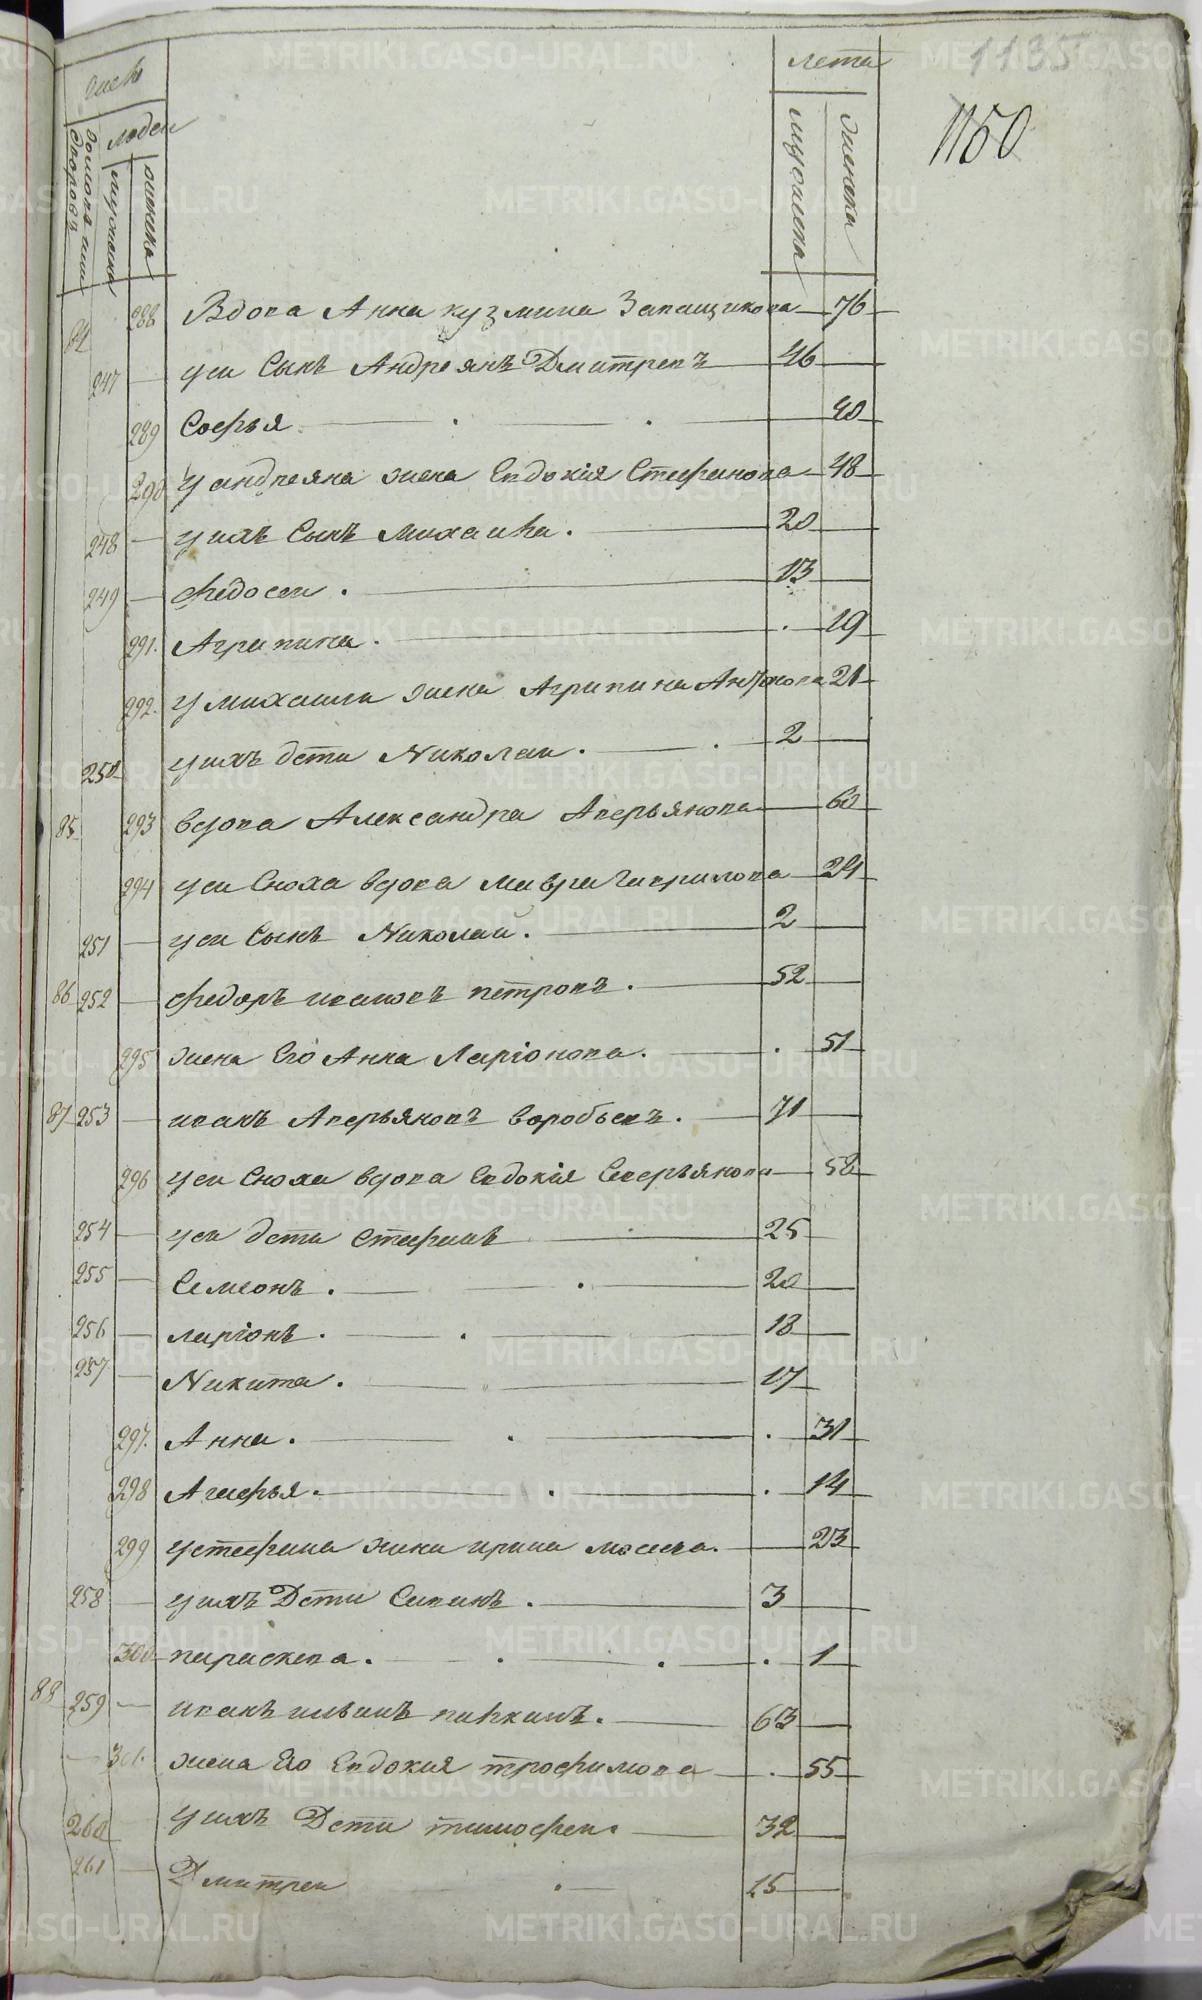 1135
1150
число лета
людеи
домовъ или дворовъ мужеска женска мужеска женска
84 288 Вдова Анна кузмина Запащикова 76
247 уеи Сынъ Андреянъ Дмитревъ 46
289 Софья 40
290 у андреяна жена Евдокія Стефанова 48
248 уихъ Сынъ михаила 20
249 федосеи 13
291 Агрипина 19
292 у михаила жена Агрипина 21
250 уихъ дети Николаи 2
85 293 вдова Александра Аверьянова 60
294 уеи Сноха вдова мавра Гаврилова 24
251 уеи Сынъ Николай 2
86 252 федоръ ивановъ петровъ 52
295 жена Его Анна Ларіонова 51
87 253 иванъ Аверьяновъ воробьевъ 71
296 уеи Сноха вдова Евдокія Северьянова 52
254 уеи дети стефанъ 25
255 Семеонъ 20
256 ларіонъ 18
257 Никита 17
297 Анна 31
298 Агафья 14
299 устефана жена ирина 23
258 уихъ Дети Силинъ 3
300 параскева 1
88 259 иванъ ильинъ 63
301 жена Его Евдокия трофимова 55
260 уихъ Дети тимофеи 32
261 Дмитреи 15
METRIKI.GASO-URAL.RU